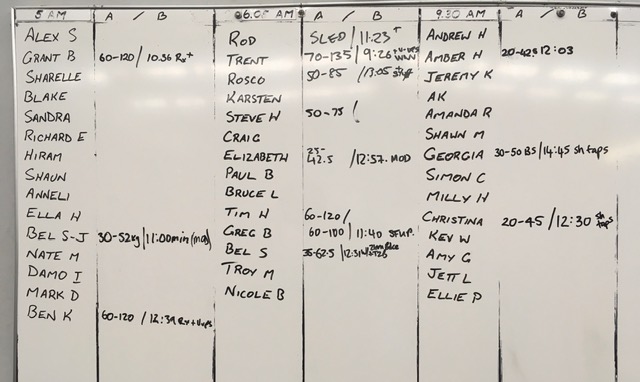 5 AM A / B 6.05 AM A / B 9.30 AM A / B
ALEX S ROD SLED / 11:23 + ANDREW H
GRANT B 60-120 / 10.36 Rx+ TRENT 70-135 / 9:26 AMBER H 20-42.5 12:03
SHARELLE ROSCO 50-85 / 13:05 JEREMY K
BLAKE KARSTEN AK
SANDRA STEVE W 50-75 / AMANDA R
RICHARD E CRAIG SHAWN M
HIRAM ELIZABETH 25-42.5 / 12:57. MOD GEORGIA 30-50 BS / 14:45 sh taps
SHAUN PAUL B SIMON C
ANNELI BRUCE L MILLY H
ELLA H TIM H 60-120 / CHRISTINA 20-45 / 12:30 sh taps
BEL S-J 30-52kg / 11:00min (mod) GREG B 60-100 / 11:40 KEV W
NATE M BEL S 35-62.5 / AMY G
DAMO I TROY M JETT L
MARK D NICOLE B ELLIE P
BEN K 60-120 / 12:39 Rx+